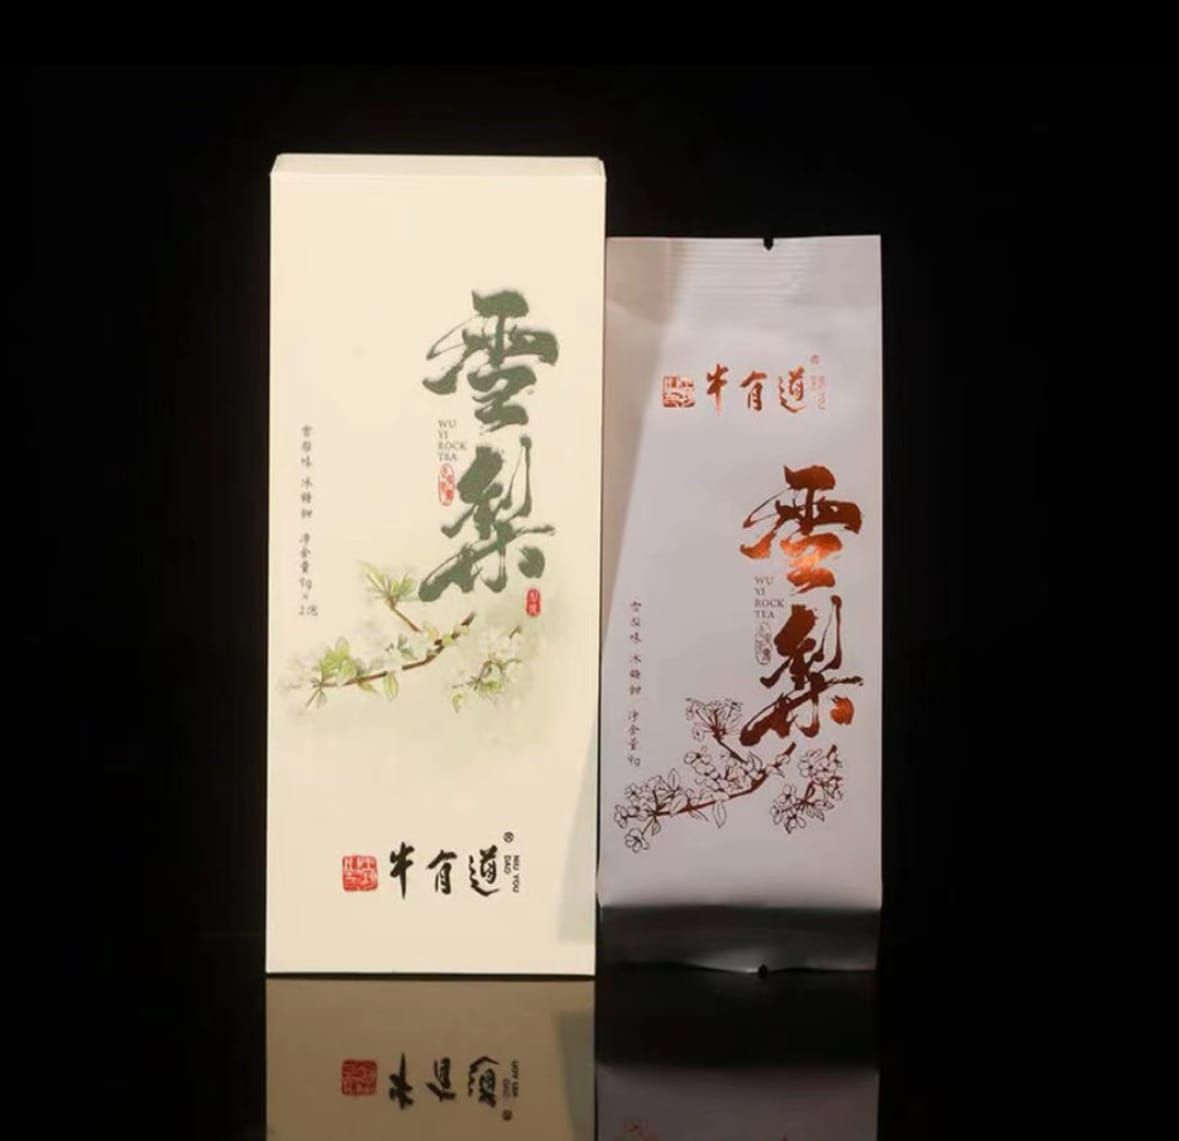 雪梨
WU
YI
ROCK
TEA
雪梨味 冰糖甜 净含量9g×2泡
牛有道®
NIU YOU
DAO
牛有道®
雪梨
WU
YI
ROCK
TEA
雪梨味 冰糖甜 净含量9g